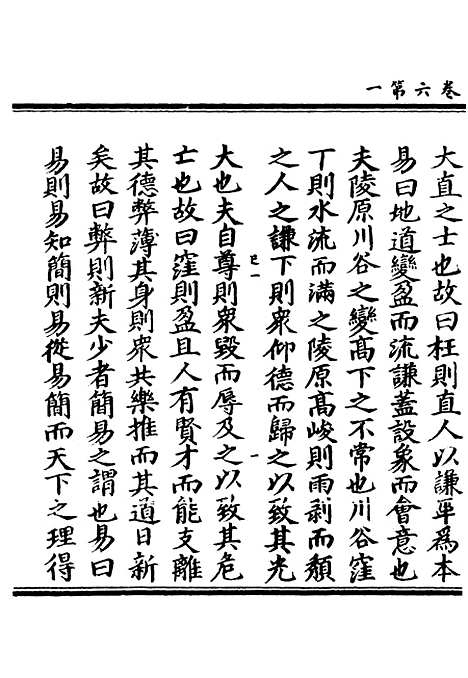 卷六第一
大直之士也故曰枉則直人以謙卑為本
易曰地道變盈而流謙蓋設象而會意也
夫陵原川谷之變高下之不常也川谷窪
下則水流而滿之陵原高峻則雨剥而頹
之人之謙下則衆仰德而歸之以致其光
大也夫自尊則衆毀而辱及之以致其危
士也故曰窪則盈且人有賢才而能支離
其德弊薄其身則衆共樂推而其道日新
矣故曰弊則新夫少者簡易之謂也易曰
易則易知簡則易從易簡而天下之理得